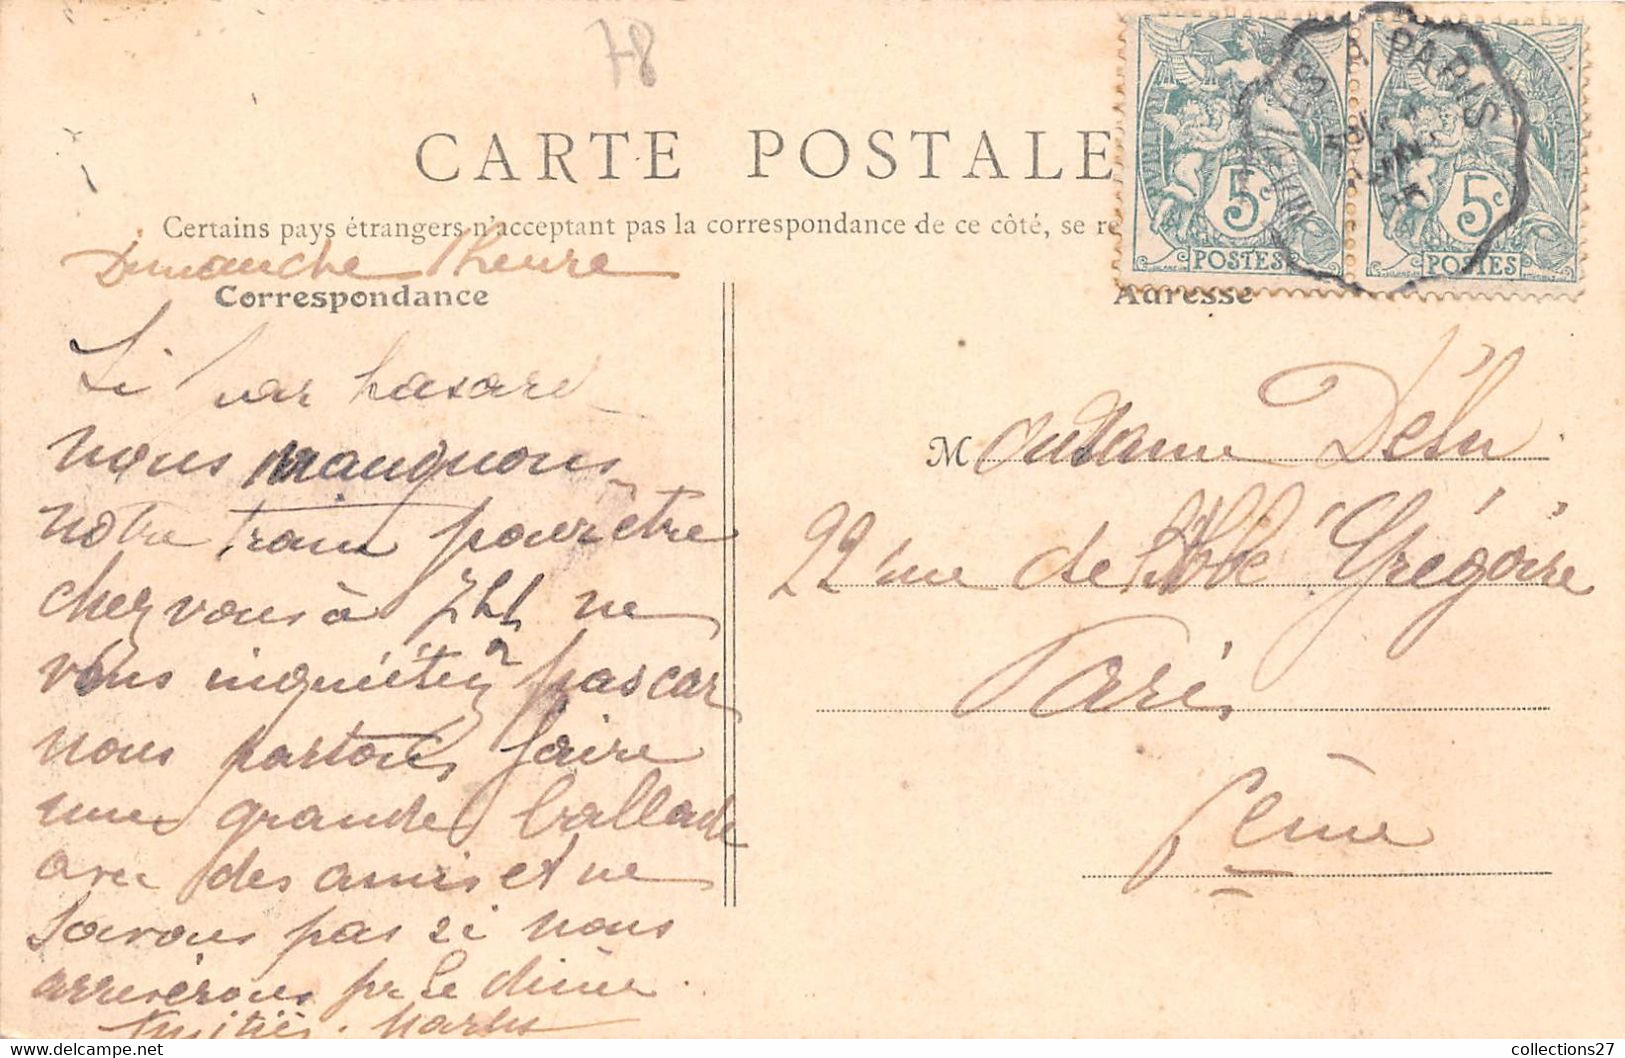 78
CARTE POSTALE
Certains pays étrangers n'acceptant pas la correspondance de ce côté, se re
Dimanche 1 heure
Correspondance
Si par hasard
nous manquons
notre train pour être
chez vous à 7h½ ne
vous inquiétez pas car
nous partons faire
une grande ballade
avec des amis et ne
savons pas si nous
arriverons pr le diner.
Amitiés.
Adresse
PARIS
5c
POSTES
5c
POSTES
Madame
22 rue de l'Abbé Grégoire
Paris
6ème
collections27